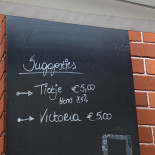 Suggesties
→ Tietje €5,00
Hard 9,5%
→ Victoria €5,00